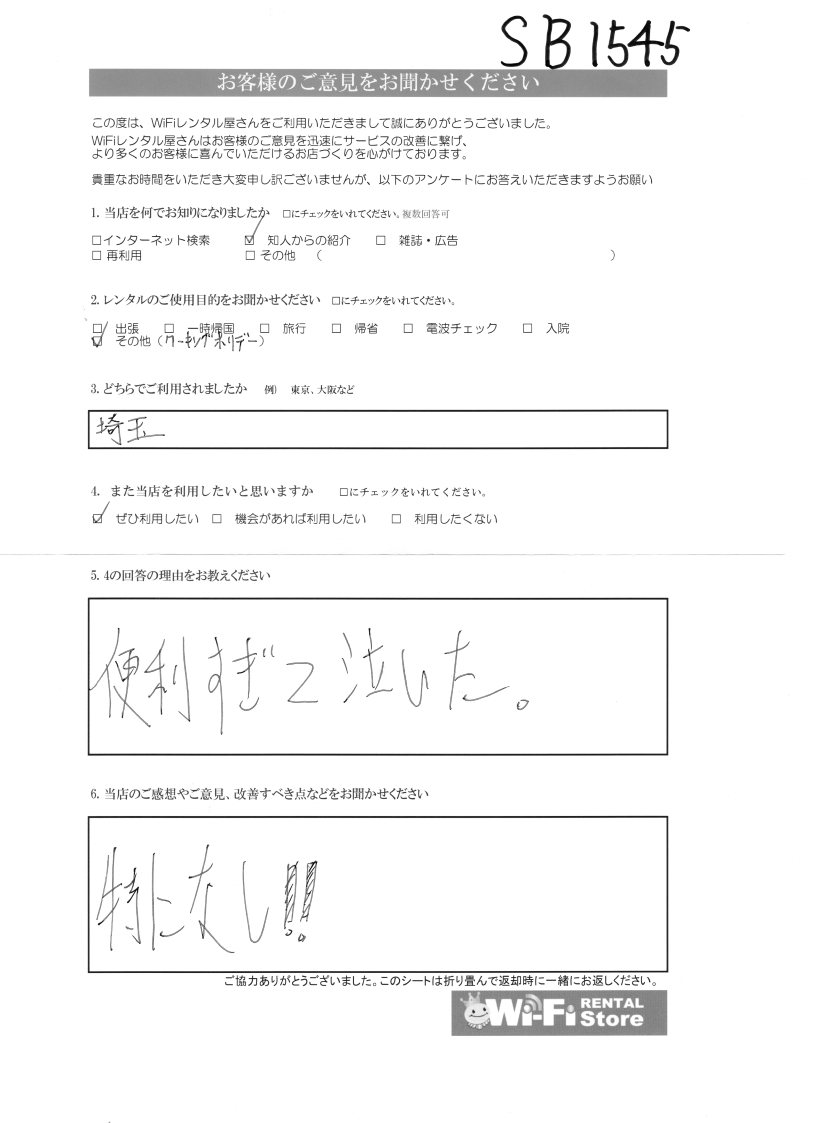 SB1545
お客様のご意見をお聞かせください
この度は、WiFiレンタル屋さんをご利用いただきまして誠にありがとうございました。
WiFiレンタル屋さんはお客様のご意見を迅速にサービスの改善に繋げ、
より多くのお客様に喜んでいただけるお店づくりを心がけております。
貴重なお時間をいただき大変申し訳ございませんが、以下のアンケートにお答えいただきますようお願い
1. 当店を何でお知りになりましたか □にチェックをいれてください。複数回答可
□インターネット検索 ☑ 知人からの紹介 □ 雑誌・広告
□ 再利用 □ その他 ( )
2. レンタルのご使用目的をお聞かせください □にチェックをいれてください。
□ 出張 □ 一時帰国 □ 旅行 □ 帰省 □ 電波チェック □ 入院
☑ その他 (ワーキングホリデー)
3. どちらでご利用されましたか 例) 東京、大阪など
埼玉
4. また当店を利用したいと思いますか □にチェックをいれてください。
☑ ぜひ利用したい □ 機会があれば利用したい □ 利用したくない
5. 4の回答の理由をお教えください
便利すぎて泣いた。
6. 当店のご感想やご意見、改善すべき点などをお聞かせください
特になし!!
ご協力ありがとうございました。このシートは折り畳んで返却時に一緒にお返しください。
Wi-Fi RENTAL Store